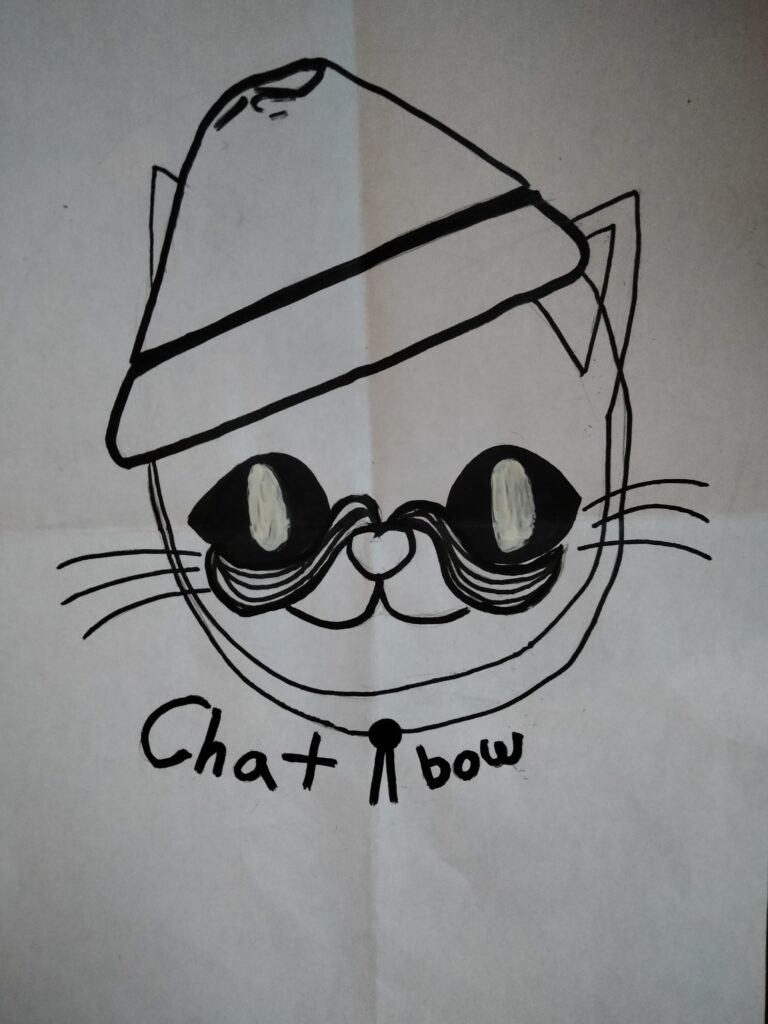 Chat bow